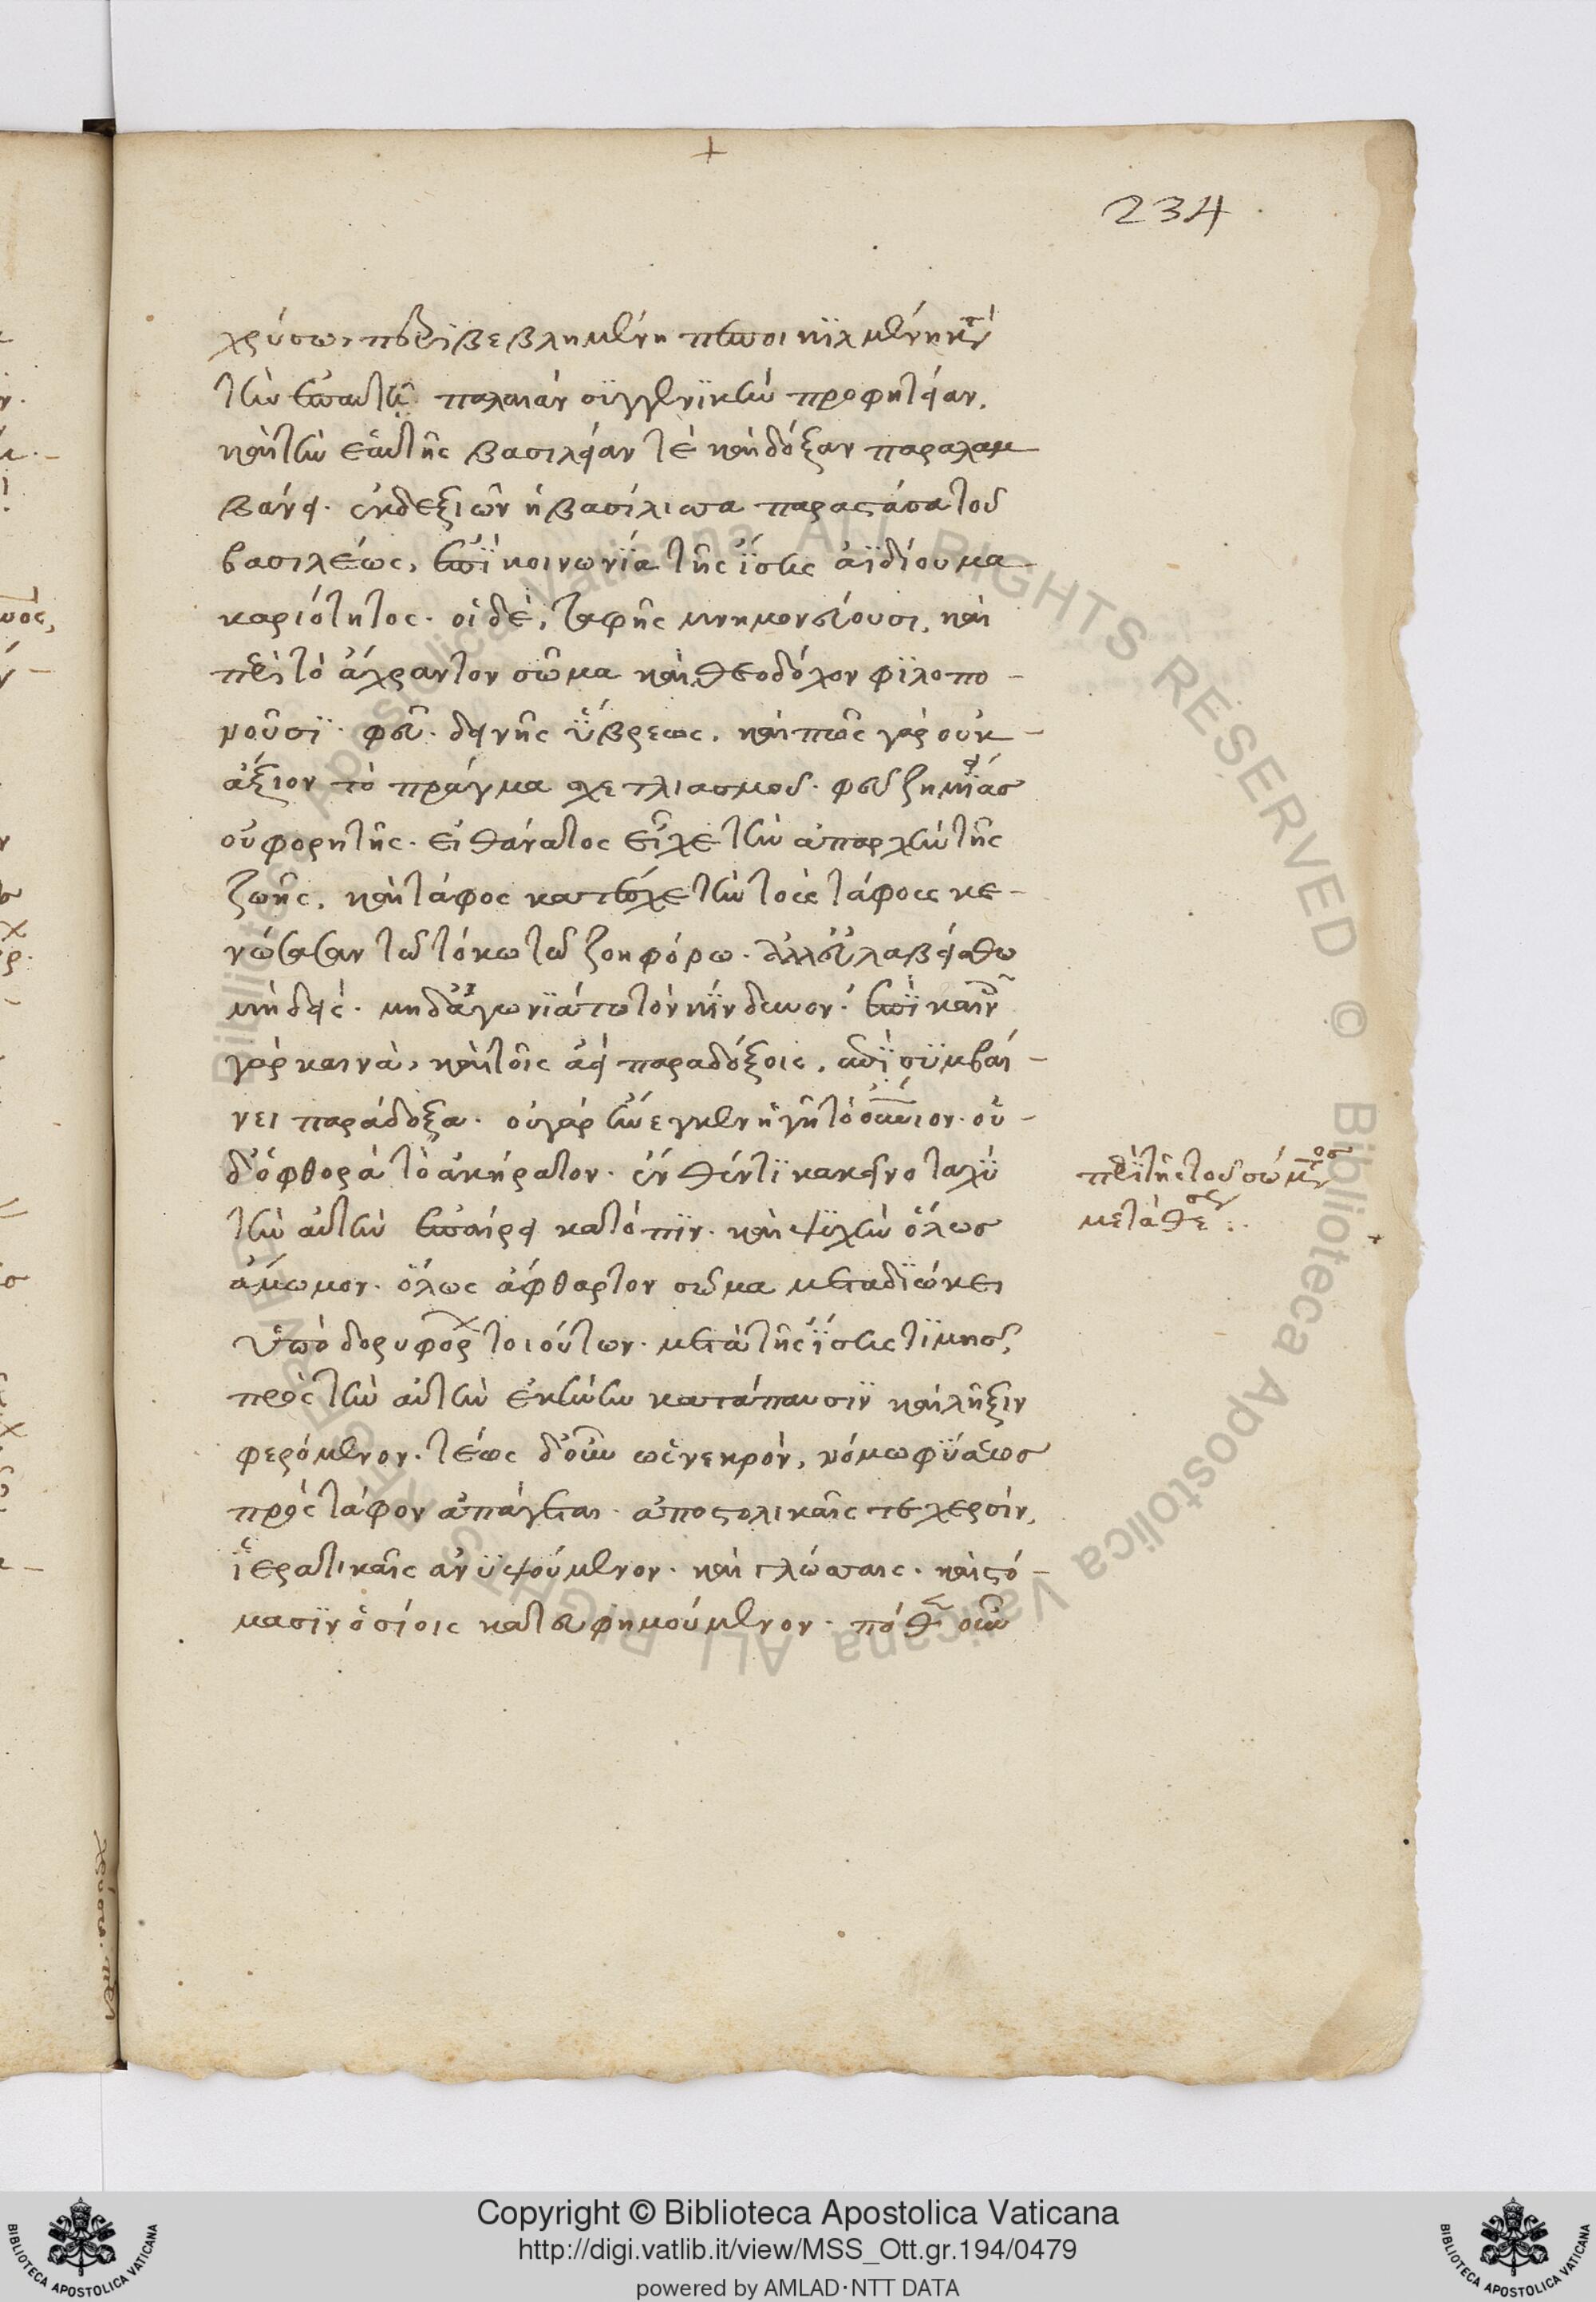 234
χρύσω, περϊβεβλημένη πεποικϊλμένη κατὰ
τὴν ἐπ αυτῆ παλαιάν σϊγγενϊκὴν προφητείαν.
καὶ τὴν ἑαυτῆς βασιλείαν τὲ καὶ δόξαν παραλαμ
βάνει. ἐκδεξιῶν ἡ βασίλισσα παραστάσα τοῦ
βασιλέως, ἐπϊ κοινωνϊα τῆς ἴσης ἀϊδίου μα
καριότητος. οἱ δὲ, ταφῆς μνημονεύουσι, καὶ
περὶ τὸ ἄχραντον σῶμα καὶ θεοδόχον φϊλοπο-
νοῦσϊ. φεῦ. δεινῆς ὕβρεως. καὶ πῶς γὰρ οὐκ-
ἄξιον τὸ πράγμα σχετλιασμοῦ. φεῦ ζημϊας
οὐ φορητῆς. εἰ θάνατος εἶχε τὴν ἀπαρχὴν τῆς
ζωῆς, καὶ τάφος κατεῖχε τὴν τοὺς τάφους κε-
νώσασαν τῶ τόκω τῶ ζοηφόρω. ἀλλ εὐλαβείσθω
μηδεὶς. μηδ ἀγωνϊάτω τὸν κϊνδυνον. ἐπϊ καινοῖς
γὰρ καινὰ, καὶ τοῖς ἀεὶ παραδόξοις, ἀεὶ σϋμβαί-
νει παράδοξα. οὐ γὰρ ἤνεγκεν ἡ γῆ τὸ οὐράνιον. οὐ-
δ' ὁ φθορὰ τὸ ἀκήρατον. ἐνθέντϊ κακεῖνο ταχϋ
τὴν αὐτὴν ἐπαίρει κατόπϊν. καὶ ψϋχὴν ὅλως
ἄμωμον. ὅλως ἀφθαρτον σῶμα μεταδϊώκει
ὑπὸ δορυφόροις τοιούτων. μετὰ τῆς ἴσης τϊμης,
πρὸς τὴν αὐτὴν ἐκείνω κατάπαυσϊν καὶ λῆξιν
φερόμενον. τέως δ' οὖν ὡς νεκρὸν, νόμω φϋσεως
πρὸς τάφον ἀπάγεται. ἀποστολικαῖς τε χερσὶν,
ἱερατικαῖς ἀνϋψούμενον. καὶ γλώσσαις. καὶ στό-
μασϊν ὁσίοις κατευφημούμενον. πόθεν οὖν
περϊ τῆς τοῦ σώματος
μεταθέσεως:.
Copyright © Biblioteca Apostolica Vaticana
http://digi.vatlib.it/view/MSS_Ott.gr.194/0479
powered by AMLAD·NTT DATA